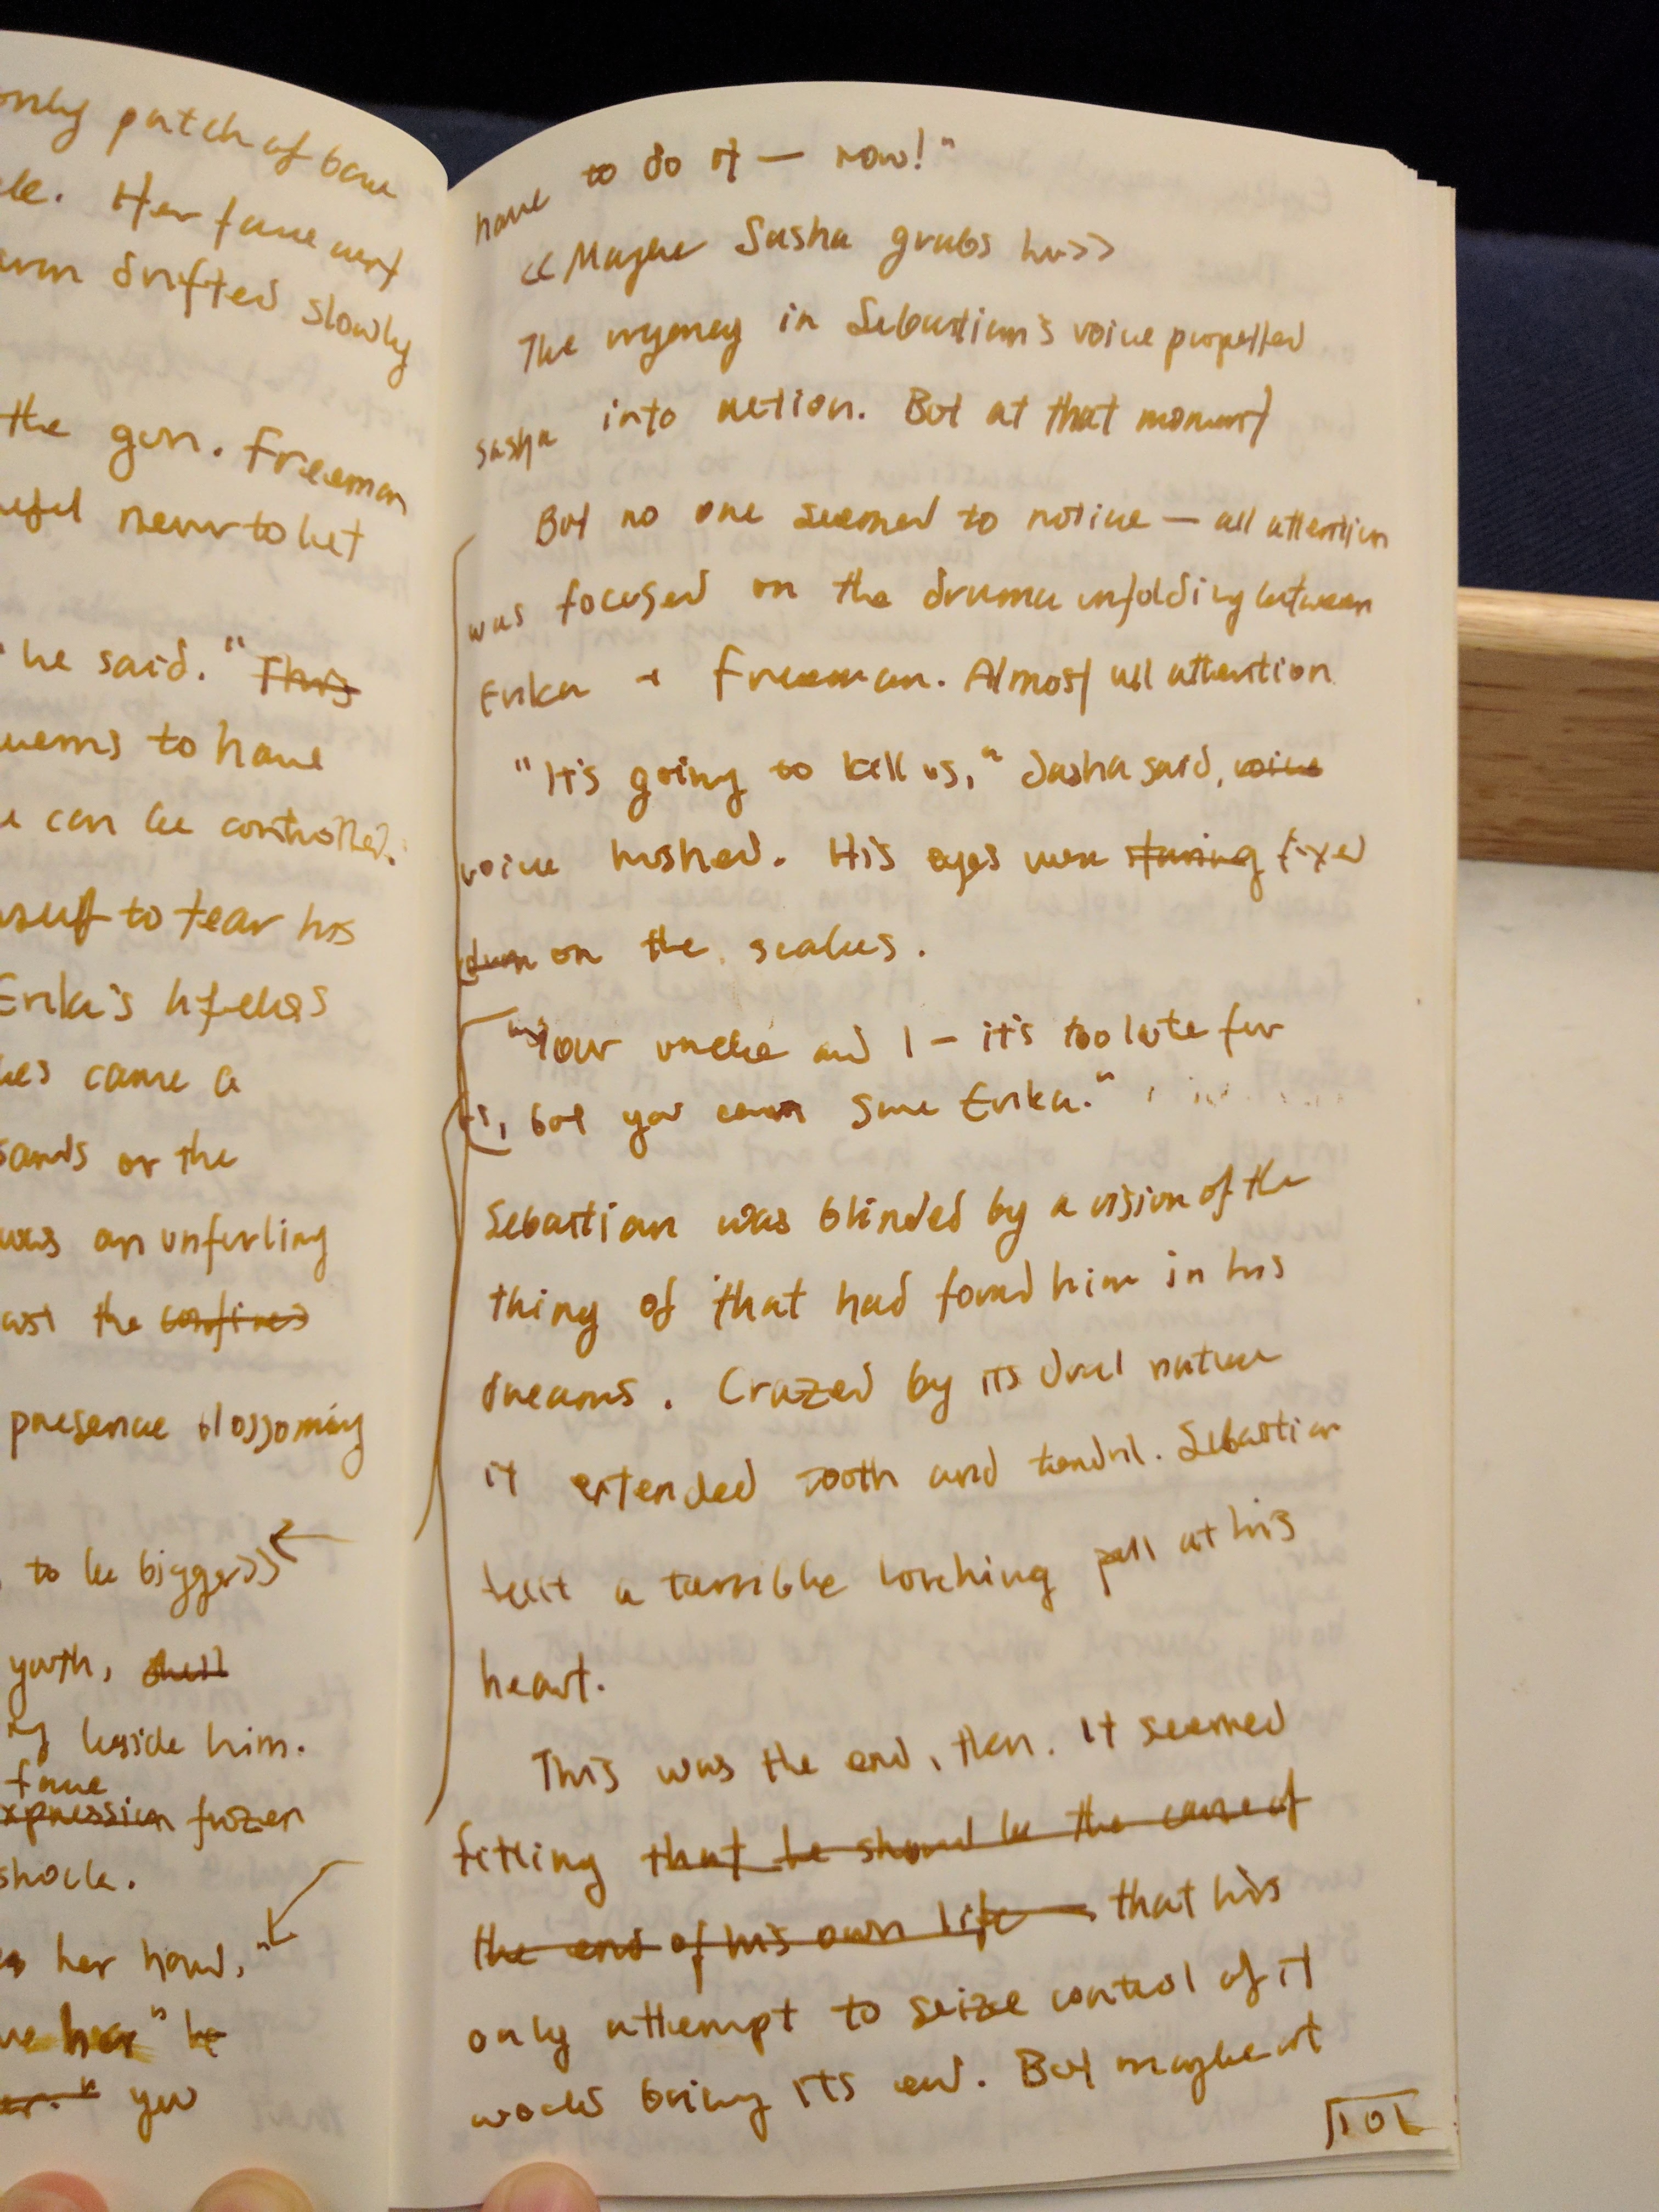 only patch of bare
Her face went
drifted slowly
the gun. Freeman
never to let
he said. "This
seems to have
can be controlled.
to tear his
Erika's
came a
sands or the
was an unfurling
the confines
presence blossoming
to be bigger>>
youth, shell
beside him.
face
expression frozen
shock.
her hand,"
her" he
you
have to do it — now!"
<<Maybe Sasha grabs her>>
The urgency in Sebastian's voice propelled
Sasha into action. But at that moment
But no one seemed to notice — all attention
was focused on the drama unfolding between
Erika + Freeman. Almost all attention
"It's going to kill us," Sasha said, voice
voice hushed. His eyes were staring fixed
on the scales.
"Your uncle and I — it's too late for
us, but you can save Erika."
Sebastian was blinded by a vision of the
thing of that had found him in his
dreams. Crazed by its dual nature
it extended tooth and tendril. Sebastian
felt a terrible lurching pull at his
heart.
This was the end, then. It seemed
fitting that he should be the cause of
the end of his own life that his
only attempt to seize control of it
would bring its end. But maybe it